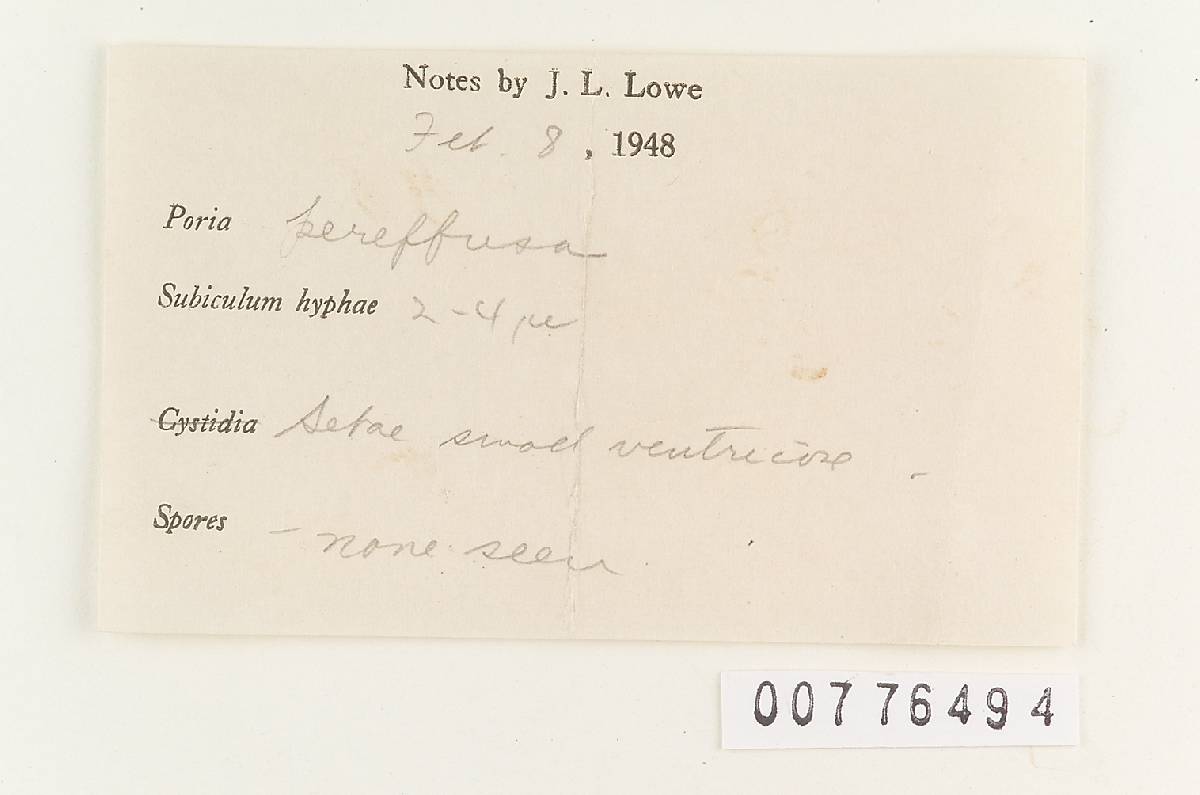 Notes by J. L. Lowe
Feb. 8, 1948
Poria pereffusa
Subiculum hyphae 2-4 μ
Cystidia Setae small ventricose -
Spores - none seen
00776494